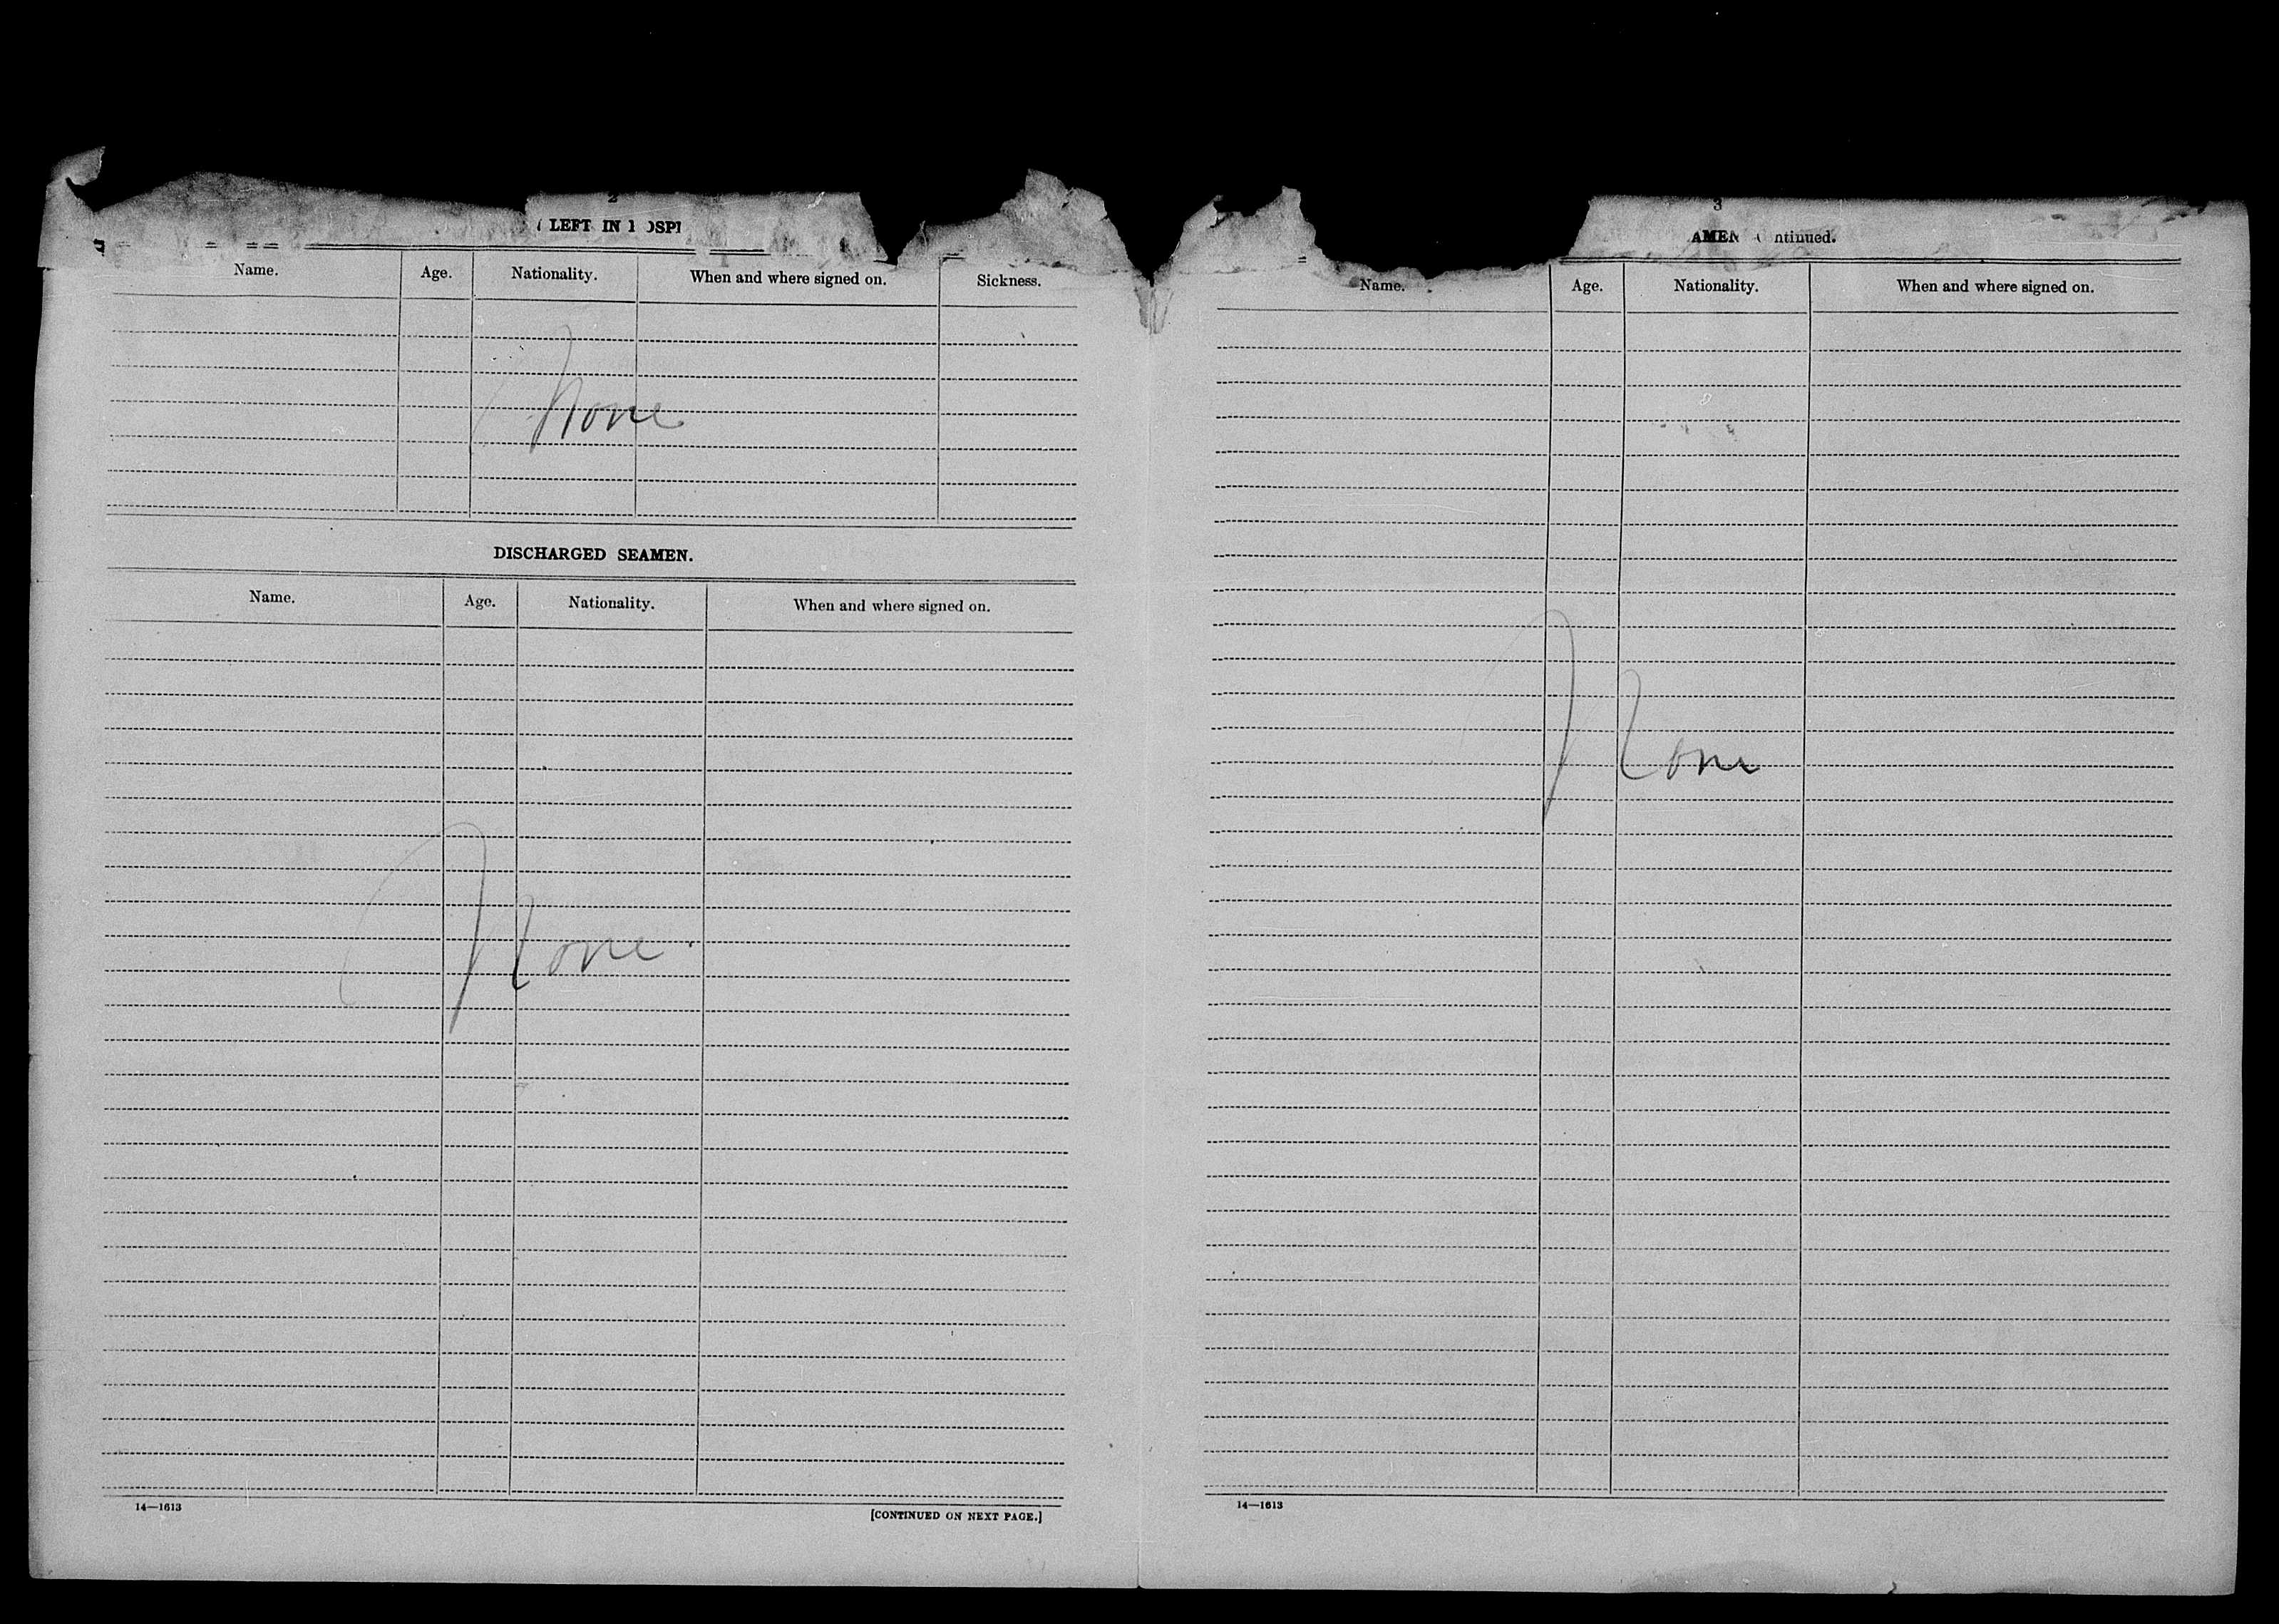 2
LEFT IN
Name. Age. Nationality. When and where signed on. Sickness.
None
DISCHARGED SEAMEN.
Name. Age. Nationality. When and where signed on.
None
14—1613
[CONTINUED ON NEXT PAGE.]
3
AMEN ntinued.
Name. Age. Nationality. When and where signed on.
None
14—1613